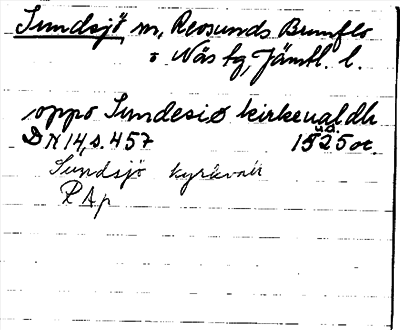 Sundsjö m, Revsunds Brunflo
o Näs tg, Jämtl. l.
oppo Sundesiø kirkeualdh
DN 14, s. 457 1525 u.å. or.
Sundsjö kyrkvall
RAp